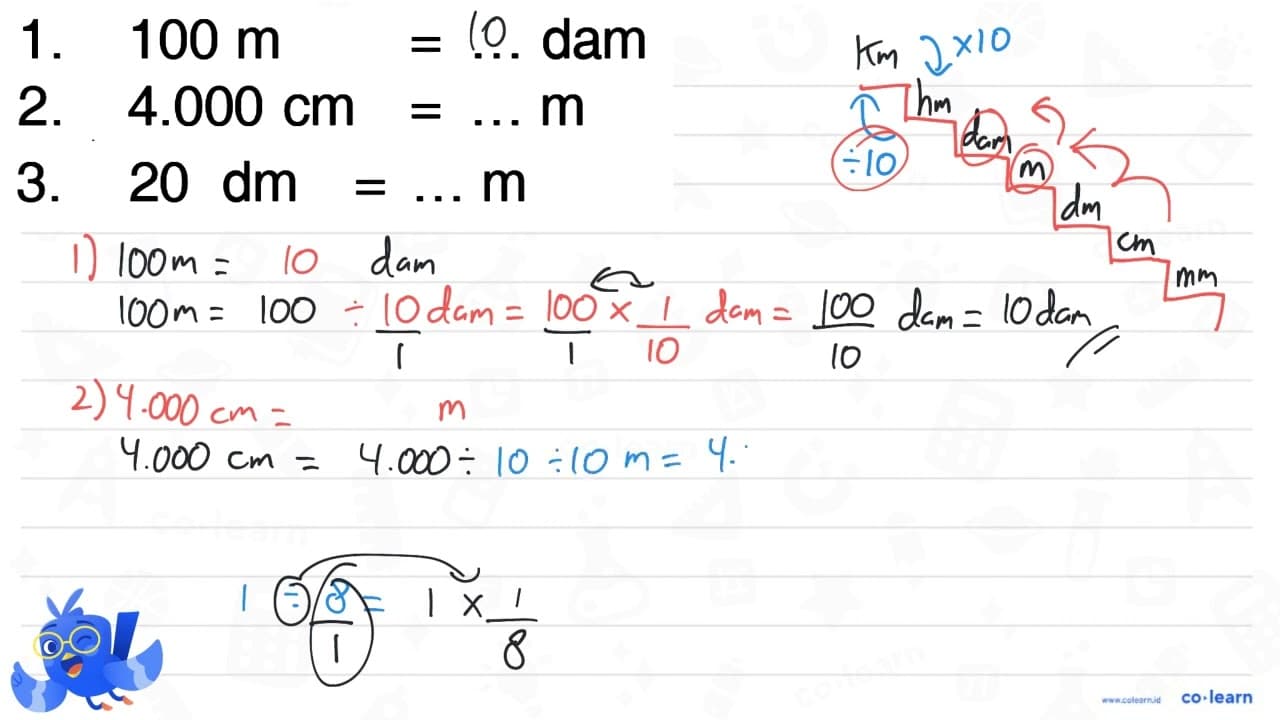 1. 100 m = 10 ... dam
2. 4.000 cm = ... m
3. 20 dm = ... m
Km ×10
÷10
hm
dam
m
dm
cm
mm
1) 100m = 10 dam
100m = 100 ÷ 10/1 dam = 100/1 × 1/10 dam = 100/10 dam = 10 dam
2) 4.000 cm = m
4.000 cm = 4.000 ÷ 10 ÷ 10 m = 4.
1 ÷ 8/1 = 1 × 1/8
www.colearn.id co·learn